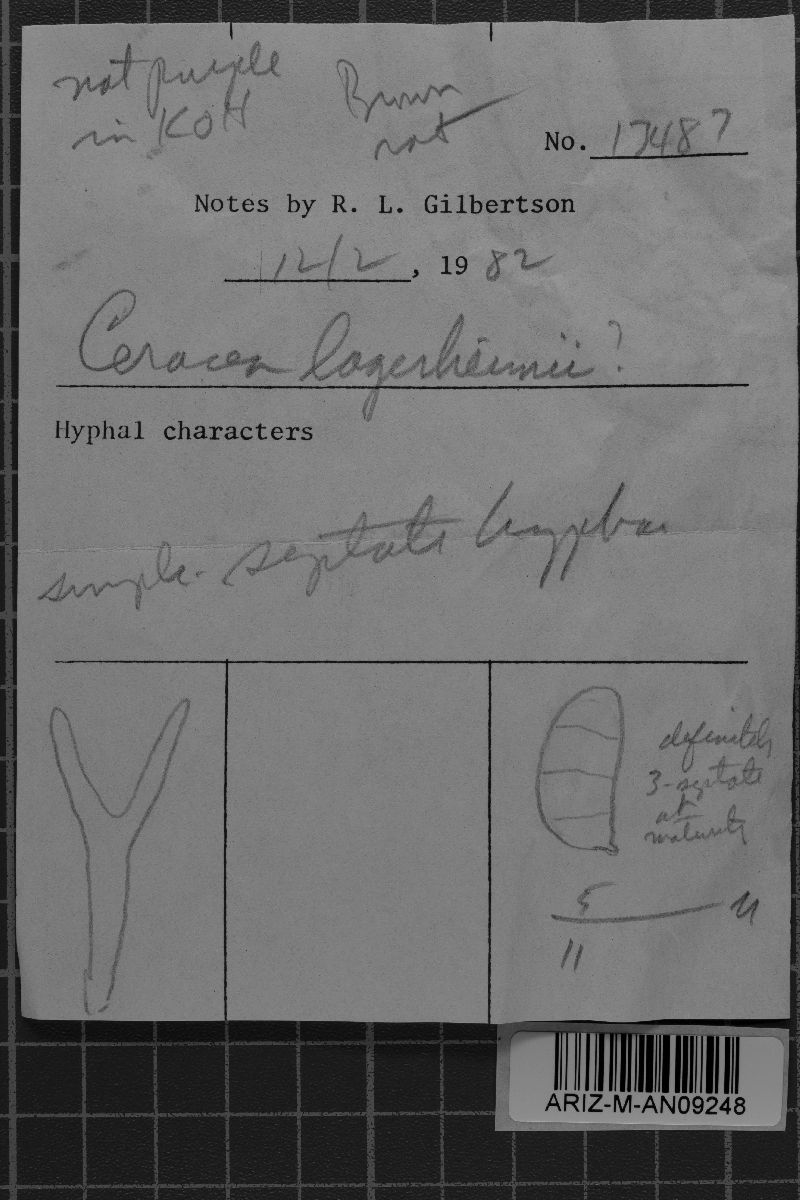 not purple
in KOH
Brown
rot
No. 17487
Notes by R. L. Gilbertson
12/2, 1982
Ceracea lagerheimii?
Hyphal characters
simple-septate hyphae
definitely
3-septate
at
maturity
5
11
µ
ARIZ-M-AN09248